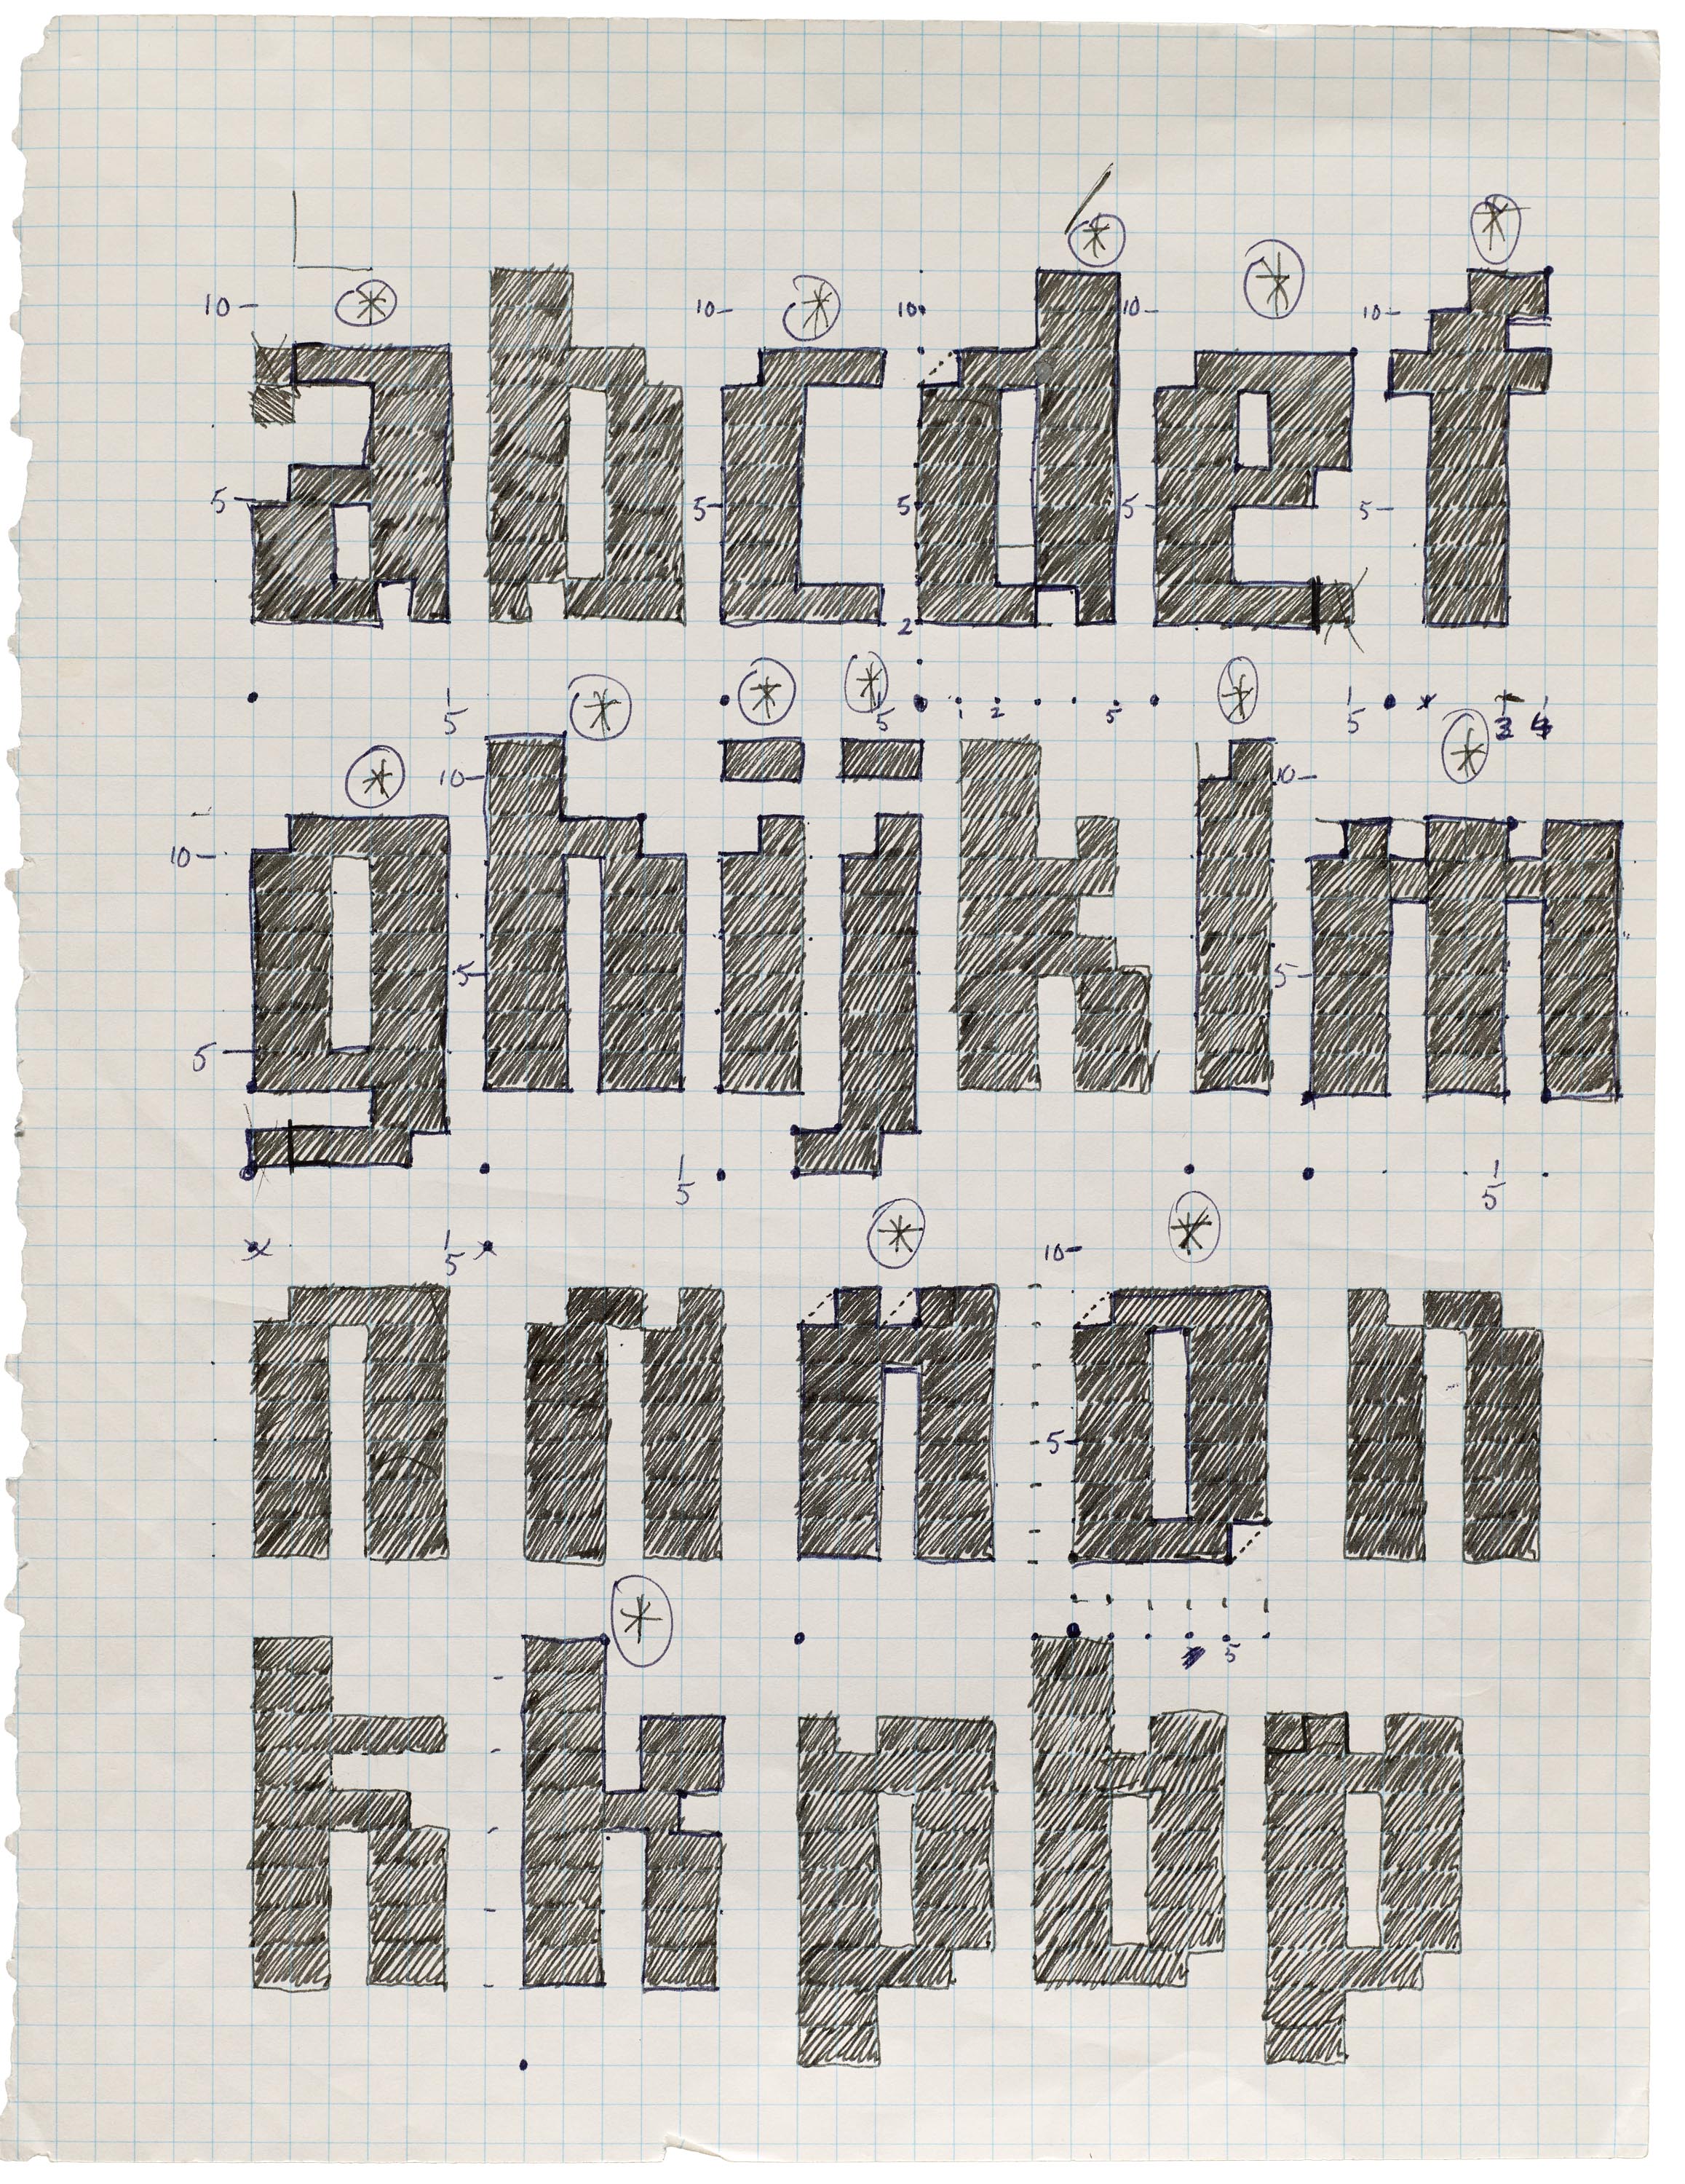 10 10 10 10 10
a b c d e f
5 5 5 5 5
2
1/5 1/5 1 2 5 1/5 3 4
10 10
g h i j k l m
10
5 5
5
1/5 1/5
1/5 10
n n n o n
5
5
k k p b p